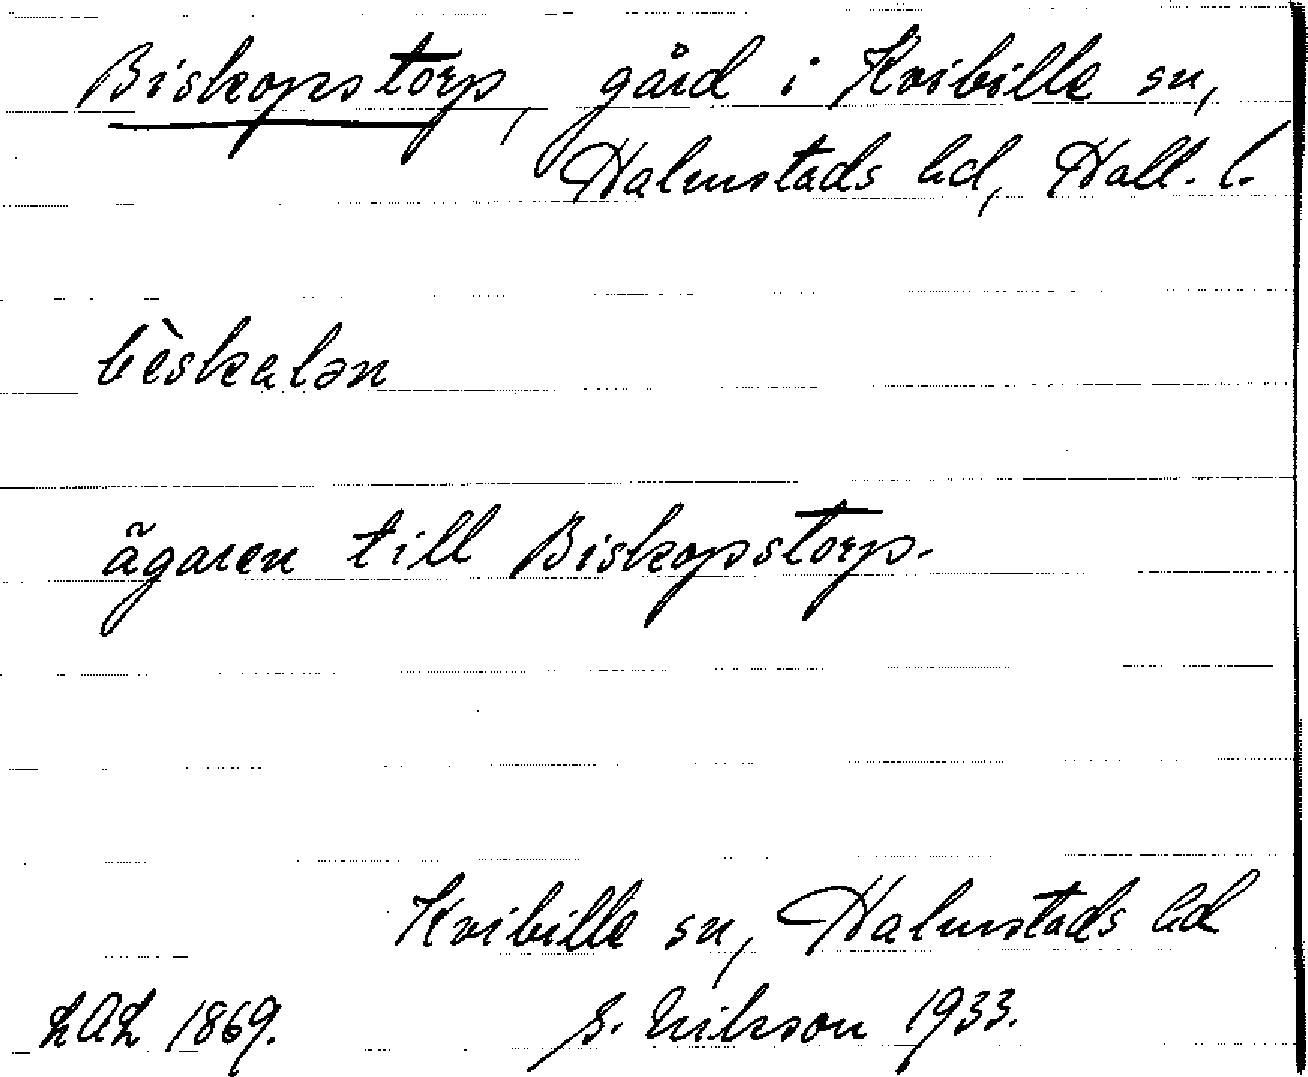 Biskopstorp, gård i Kvibille sn,
Halmstads hd, Hall. l.
bèskalən
ägaren till Biskopstorp.
Kvibille sn, Halmstads hd
LAL 1869. S. Erikson 1933.